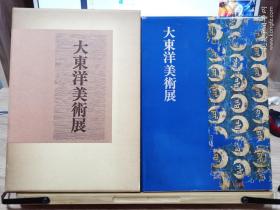 大東洋美術展
大東洋美術展